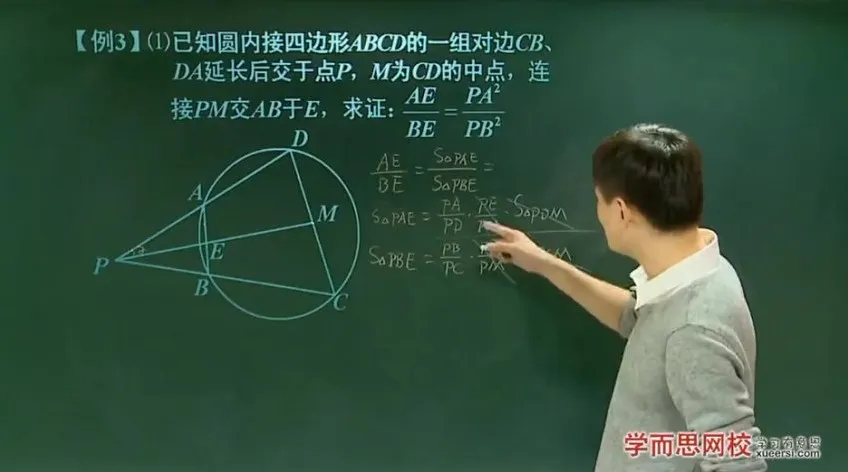 【例3】(1)已知圆内接四边形ABCD的一组对边CB、
DA延长后交于点P，M为CD的中点，连
接PM交AB于E，求证：AE/BE=PA²/PB²
D
A
M
E
P
B
C
AE/BE = S△PAE/S△PBE =
S△PAE = PA/PD · PE/ · S△PDM
S△PBE = PB/PC · /PM
学而思网校
学习有意思
xueersi.com